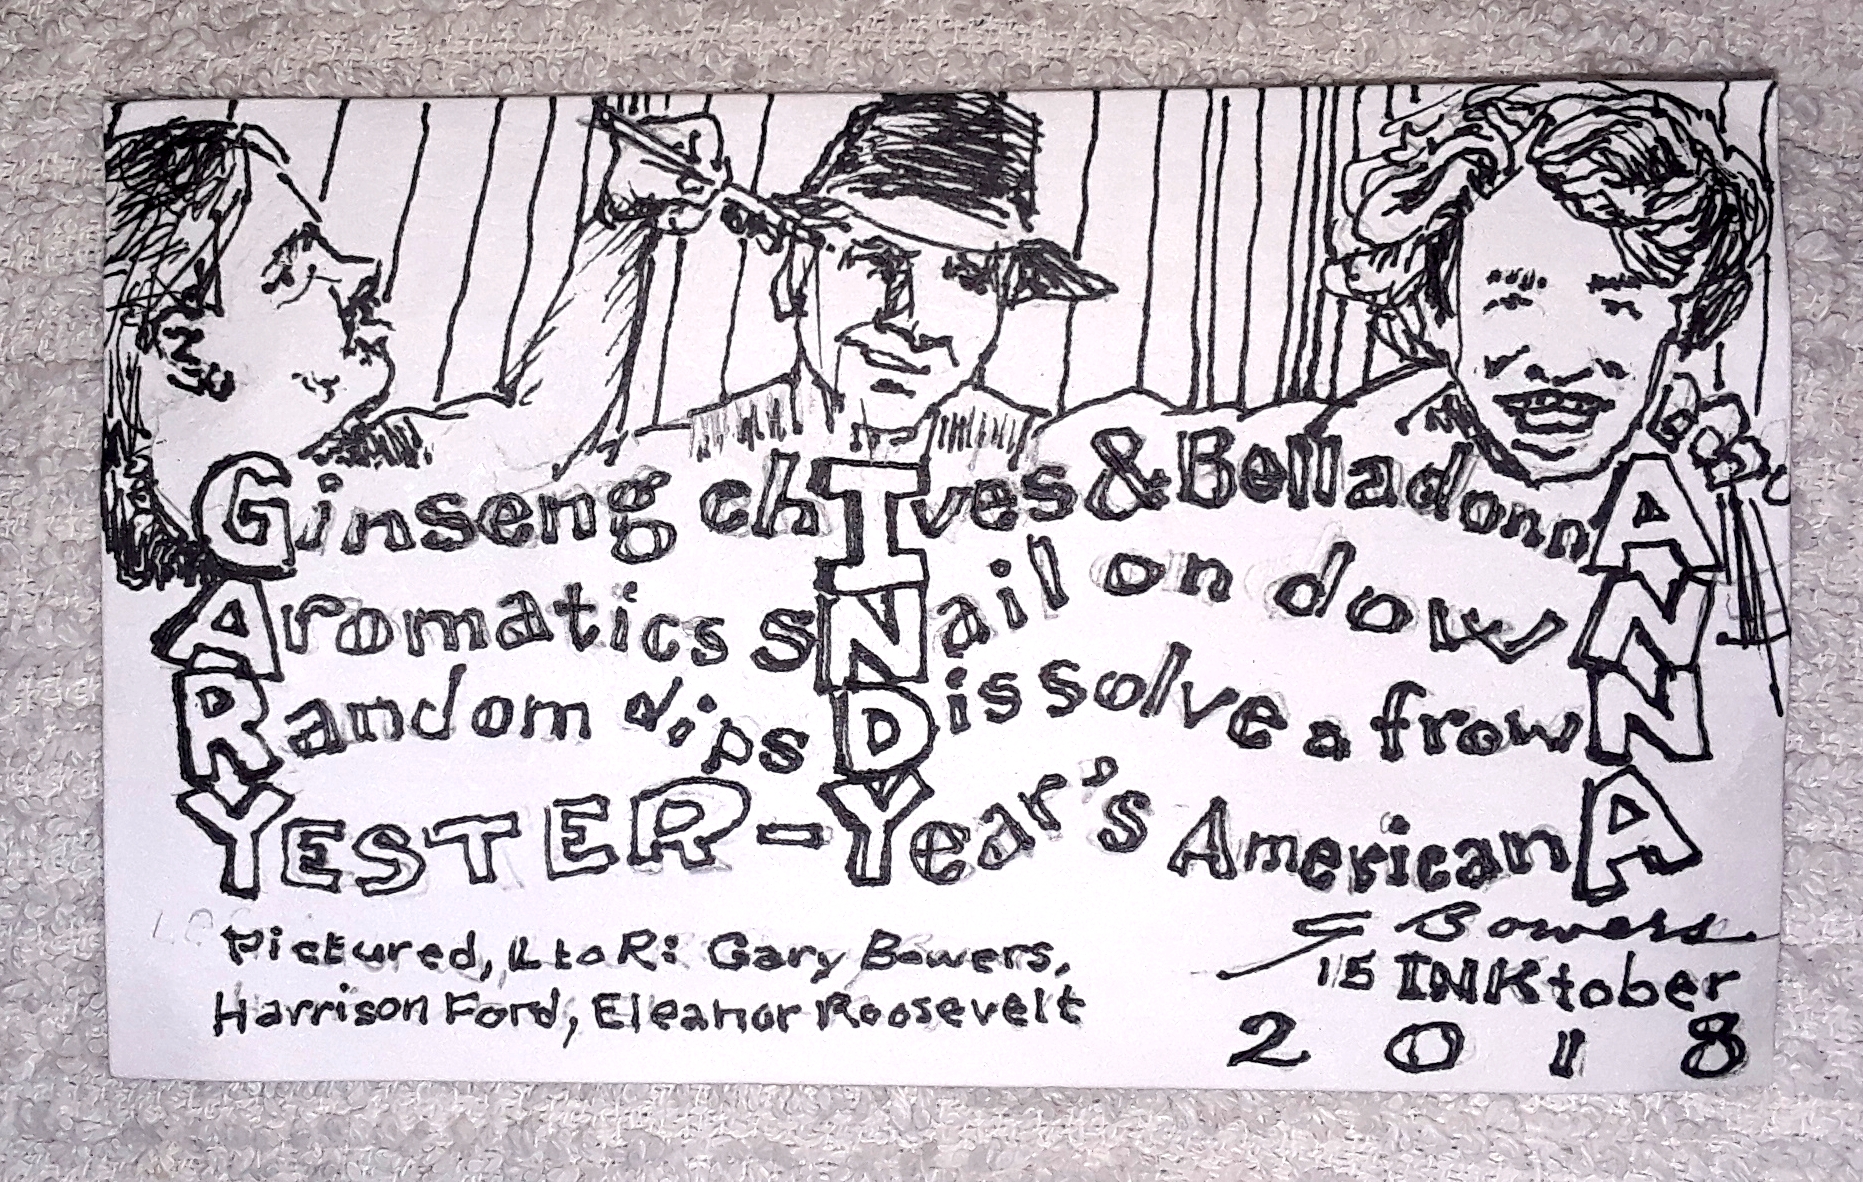 Ginseng chIves & BelladonnA
Aromatics sNail on dowN
Random dips Dissolve a frowN
YESTER-Year's AmericanA
Pictured, L to R: Gary Bowers,
Harrison Ford, Eleanor Roosevelt
G Bowers
15 INKtober
2018